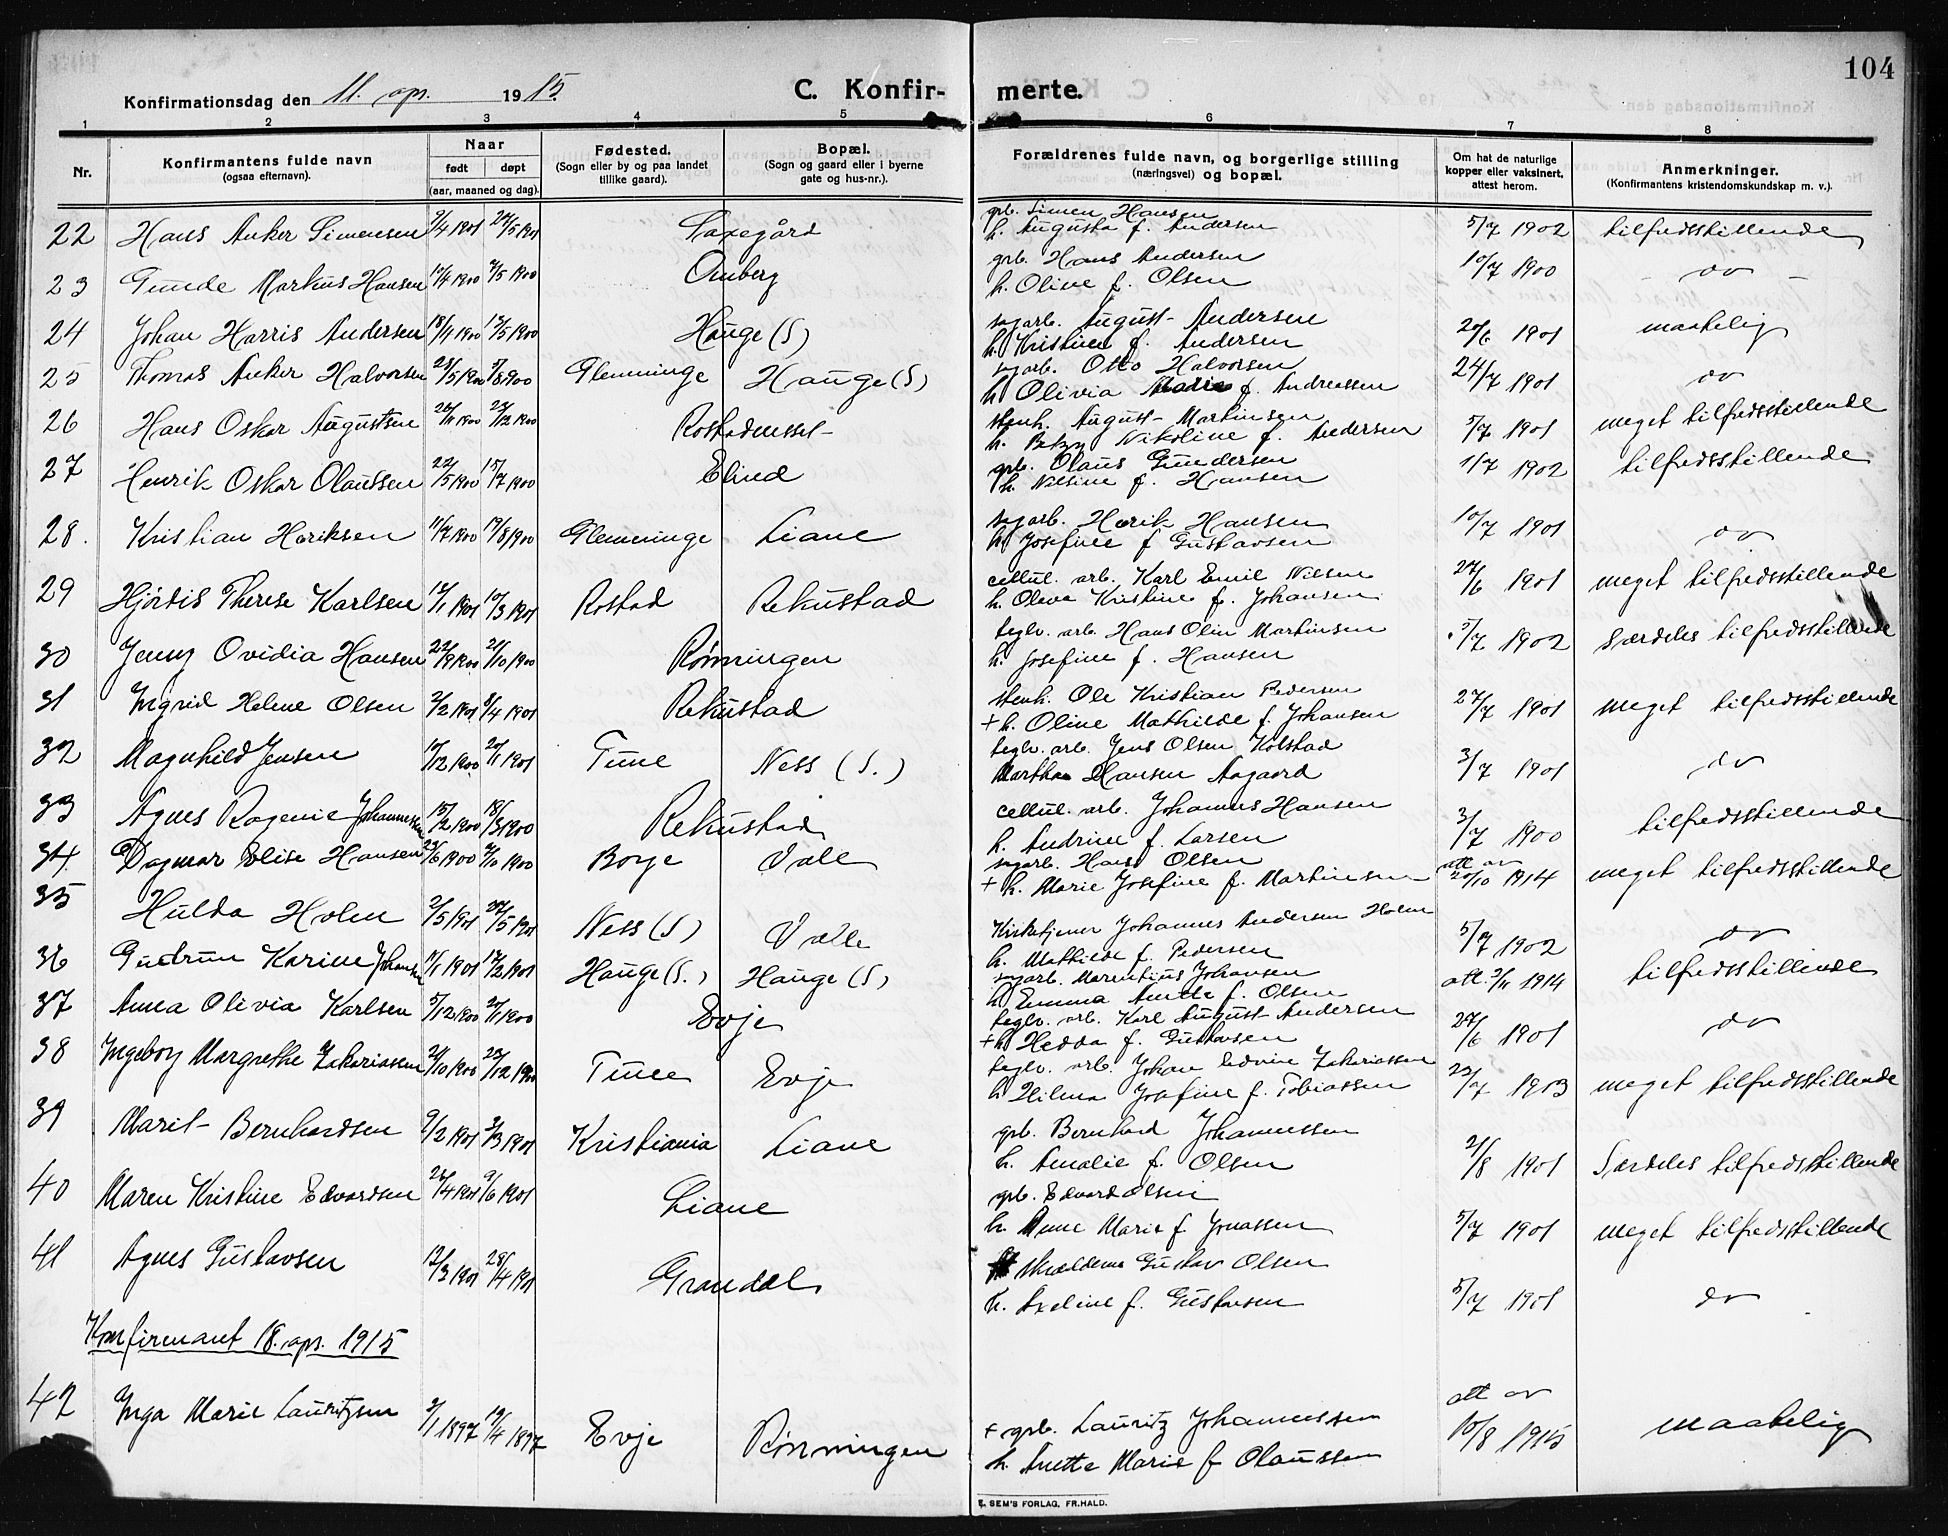 104
Konfirmationsdag den 11. apr. 1915
C. Konfirmerte.
1 2 3 4 5 6 7 8
Nr.
Konfirmantens fulde navn
(ogsaa efternavn).
Naar
født døpt
(aar, maaned og dag).
Fødested.
(Sogn eller by og paa landet
tillike gaard).
Bopæl.
(Sogn og gaard eller i byerne
gate og hus-nr.).
Forældrenes fulde navn, og borgerlige stilling
(næringsvei) og bopæl.
Om hat de naturlige
kopper eller vaksinert,
attest herom.
Anmerkninger.
(Konfirmantens kristendomskundskap m. v.).
22 Hans Anker Simensen 2/4 1901 27/5 1901 Saxegård grb. Simen Hansen
h. Augusta f. Andersen 5/7 1902 tilfredsstillende
23 Gunde Markus Hansen 1900 1900 Omberg grb. Hans Andersen
h. Oline f. Olsen 10/7 1900 - do -
24 Johan Harris Andersen 1900 1900 Hauge (S) sagarb. August Andersen
h. Kristine f. Andersen 20/6 1901 maatelig
25 Thomas Anker Halvorsen 1900 1900 Glemminge Hauge (S) sagarb. Otto Halvorsen
h. Olivia Maria f. Andreassen 24/7 1901 do
26 Hans Oskar Augustsen 1900 1900 Rostadmssel- stenh. August Martinsen
h. Betzy Nikoline f. Andersen 5/7 1901 meget tilfredsstillende
27 Henrik Oskar Olaussen 22/5 1900 15/7 1900 Elind grb. Olaus Gundersen
h. Nilsine f. Hansen 1/7 1902 tilfredsstillende
28. Kristian Henriksen 11/7 1900 19/8 1900 Glemminge Liane sagarb. Henrik Hansen
h. Josefine f. Gustavsen 10/7 1901 do
29 Hjørdis Therese Karlsen 1901 10/3 1901 Rostad Rekustad cellul. arb. Karl Emil Nilsen
h. Oleva Kristine f. Johansen 27/6 1901 meget tilfredsstillende
30 Jenny Ovidia Hansen 22/9 1900 21/10 1900 Rønningen teglv. arb. Hans Olin Martinsen
h. Josefine f. Hansen 5/7 1902 Særdeles tilfredsstillende
31 Ingrid Helene Olsen 2/2 1901 8/4 1901 Rekustad stenh. Ole Kristian Pedersen
+ h. Oline Mathilde f. Johansen 27/7 1901 meget tilfredsstillende
32 Magnhild Jensen 1900 20/1 1901 Tune Ness (S.) teglv. arb. Jens Olsen Kolstad
Martha Hansen Aagaard 3/7 1901 do
33 Agnes Ragenie Johannessen 15/2 1900 18/3 1900 Rekustad cellul. arb. Johannes Hansen
h. Andrine f. Larsen 3/7 1900 tilfredsstillende
34. Dagmar Elise Hansen 1900 1900 Borge Valle sagarb. Hans Olsen
+ h. Marie Josefine f. Martinsen att. av
20/10 1914 meget tilfredsstillende
35 Hulda Holm 2/5 1901 27/5 1901 Ness (S) Valle Kirketjener Johannes Andersen Holm
h. Mathilde f. Pedersen 5/7 1902 do
36 Gudrun Karine Johansen 11/1 1901 17/2 1901 Hauge (S.) Hauge (S) sagarb. Marentius Johansen
h. Emma Anette f. Olsen att. 1914 tilfredsstillende
37 Anna Olivia Karlsen 5/12 1900 20/1 1900 Evje teglv. arb. Karl August Andersen
+ h. Hedda f. Gustavsen 27/6 1901 do
38 Ingeborg Margrethe Zakariassen 1900 1900 Tune Evje teglv. arb. Johan Edvin Zakariassen
h. Hilma Josefine f. Tobiassen 1903 meget tilfredsstillende
39 Marit Bernhardsen 9/2 1901 3/3 1901 Kristiania Liane grb. Bernhard Johannessen
h. Amalie f. Olsen 2/8 1901 Særdeles tilfredsstillende
40 Maren Kristine Edvardsen 1901 9/6 1901 Liane grb. Edvard Olsen
h. Anne Marie f. Jonassen 5/7 1901 meget tilfredsstillende
41 Agnes Gustavsen 12/3 1901 28/4 1901 Grandal skrædderm Gustav Olsen
h. Axeline f. Gustavsen 5/7 1901 do
Konfirmant 18. apr. 1915
42 Inga Marie Lauritzsen 1897 19/4 1897 Evje Rønningen + grb. Lauritz Johannessen
h. Anette Marie f. Olaussen att av
10/8 1915 maatelig
E. SEM'S FORLAG, FR.HALD.